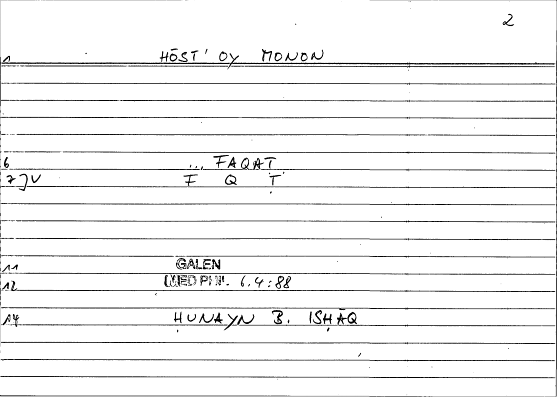 2
1 HŌST' OY MONON
6 ... FAQAṬ
7]V F Q Ṭ
11 GALEN
12 MED PHil. 6.4:88
14 ḤUNAYN B. ISḤĀQ